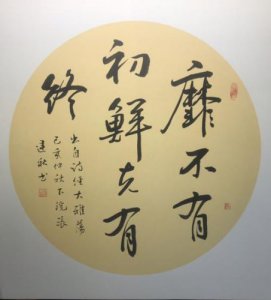 靡不有
初鮮克有
終
出自詩經大雅蕩
己亥仲秋下浣張
秋书